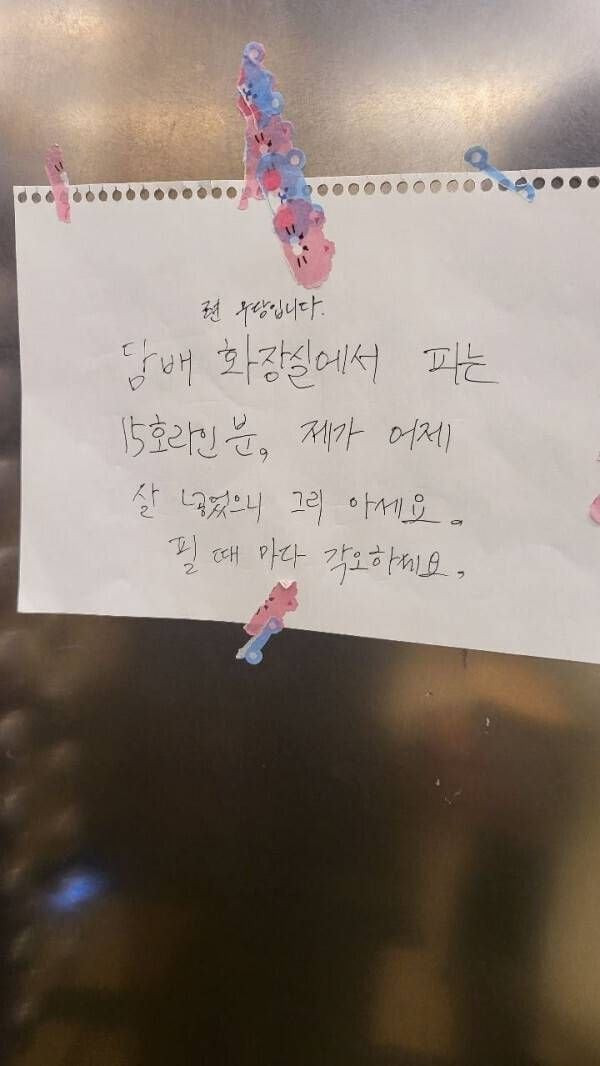 전 무당입니다.
담배 화장실에서 피는
15호라인분, 제가 어제
살 넣었으니 그리 아세요.
필 때 마다 각오하세요.